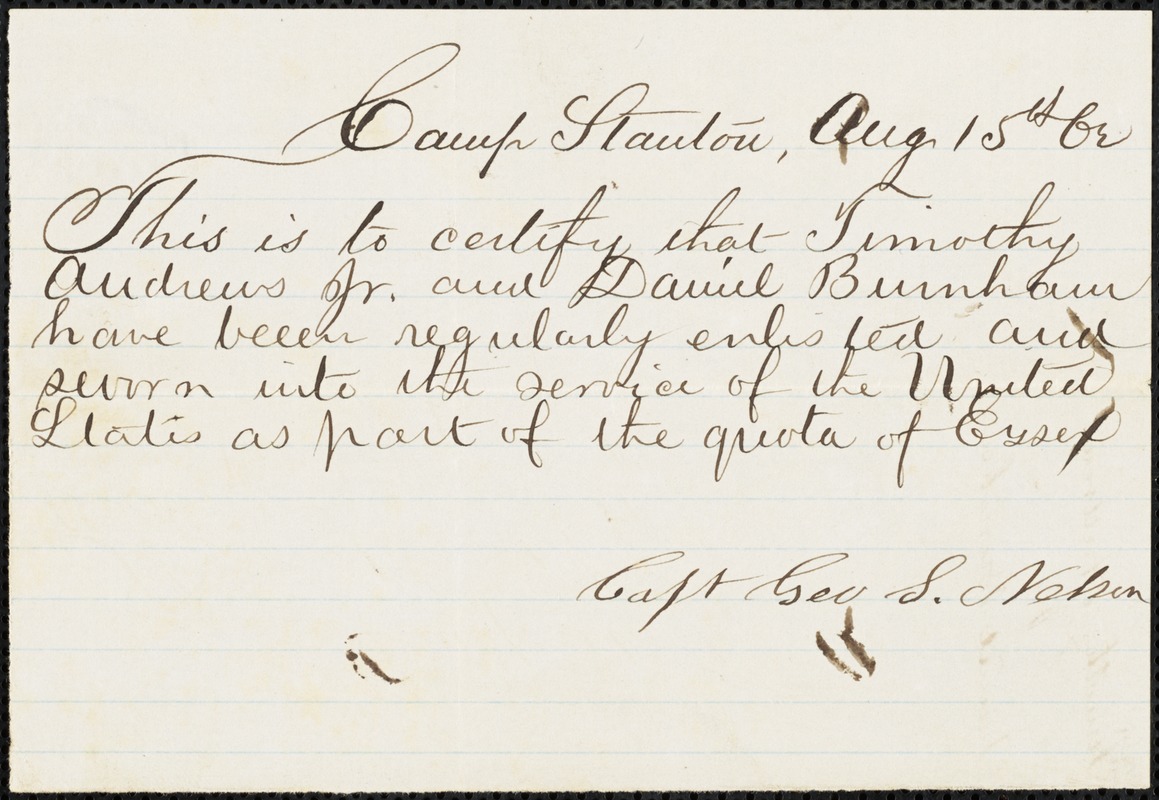 Camp Stanton, Aug 15th 62
This is to certify that Timothy
Andrews Jr. and Daniel Burnham
have beeen regularly enlisted and
sworn into the service of the United
States as part of the quota of Essex
Capt Geo S. Nelson